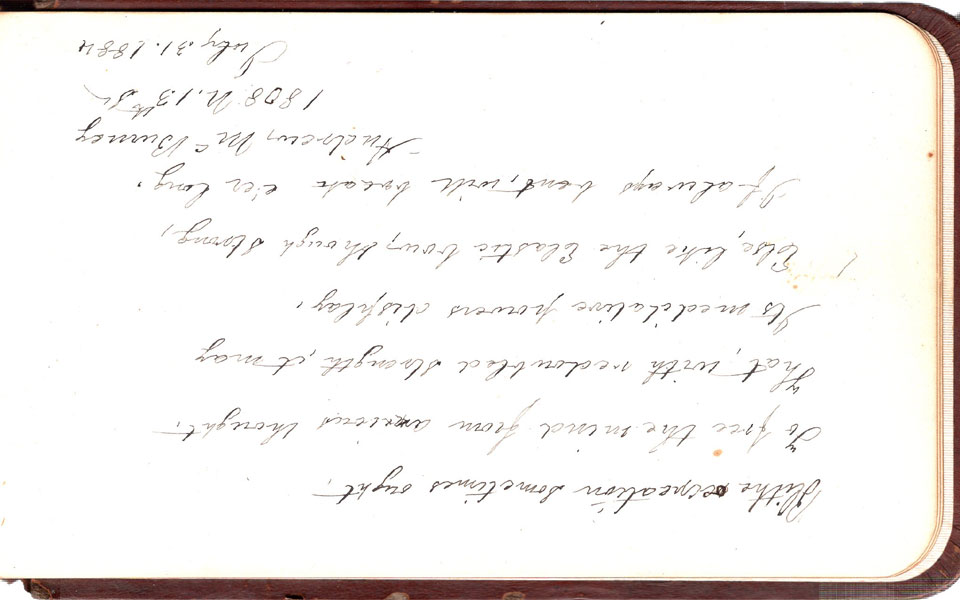 Blithe recreation sometimes ought,
To free the mind from anxious thought.
That, with redoubled strength, it may
Its meditative powers display,
Else, like the Elastic bow, though strong,
If always bent, will break e'er long.
Andrew Mc Burney
1808 N. 13th St
July 31. 1884